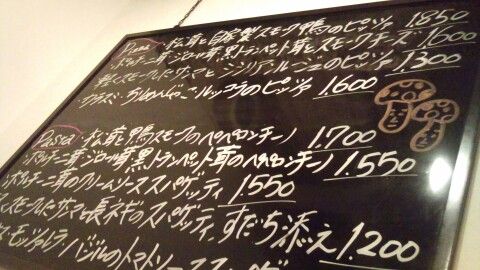 Pizza ・松茸と自家製スモーク鴨のピッツァ 1850
ポルチーニ茸・ジロール茸・黒トランペット茸とスモークチーズ 1600
軽くスモークしたサンマとシシリアンルージュのピッツァ 1,300
シラス・ちりめんじゃこ・ルッコラのピッツァ 1600
Pasta ・松茸と鴨スモークのペペロンチーノ 1.700
ポルチーニ茸・ジロール茸・黒トランペット茸のペペロンチーノ 1.550
ポルチーニ茸のクリームソーススパゲッティ 1550
スモークしたサンマと長ネギのスパゲッティ、すだち添え 1.200
モッツァレラ・バジルのトマトソース